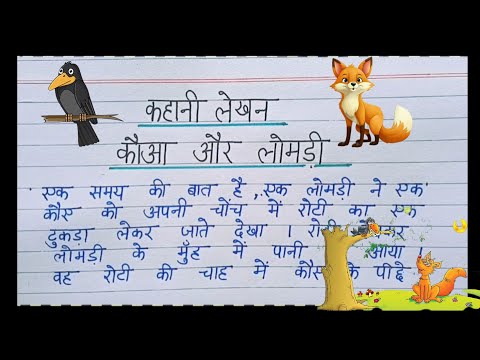 कहानी लेखन
कौआ और लोमड़ी
एक समय की बात है, एक लोमड़ी ने एक
कौए को अपनी चोंच में रोटी का एक
टुकड़ा लेकर जाते देखा । रोटी
लोमड़ी के मुँह में पानी आया
वह रोटी की चाह में कौए के पीछे